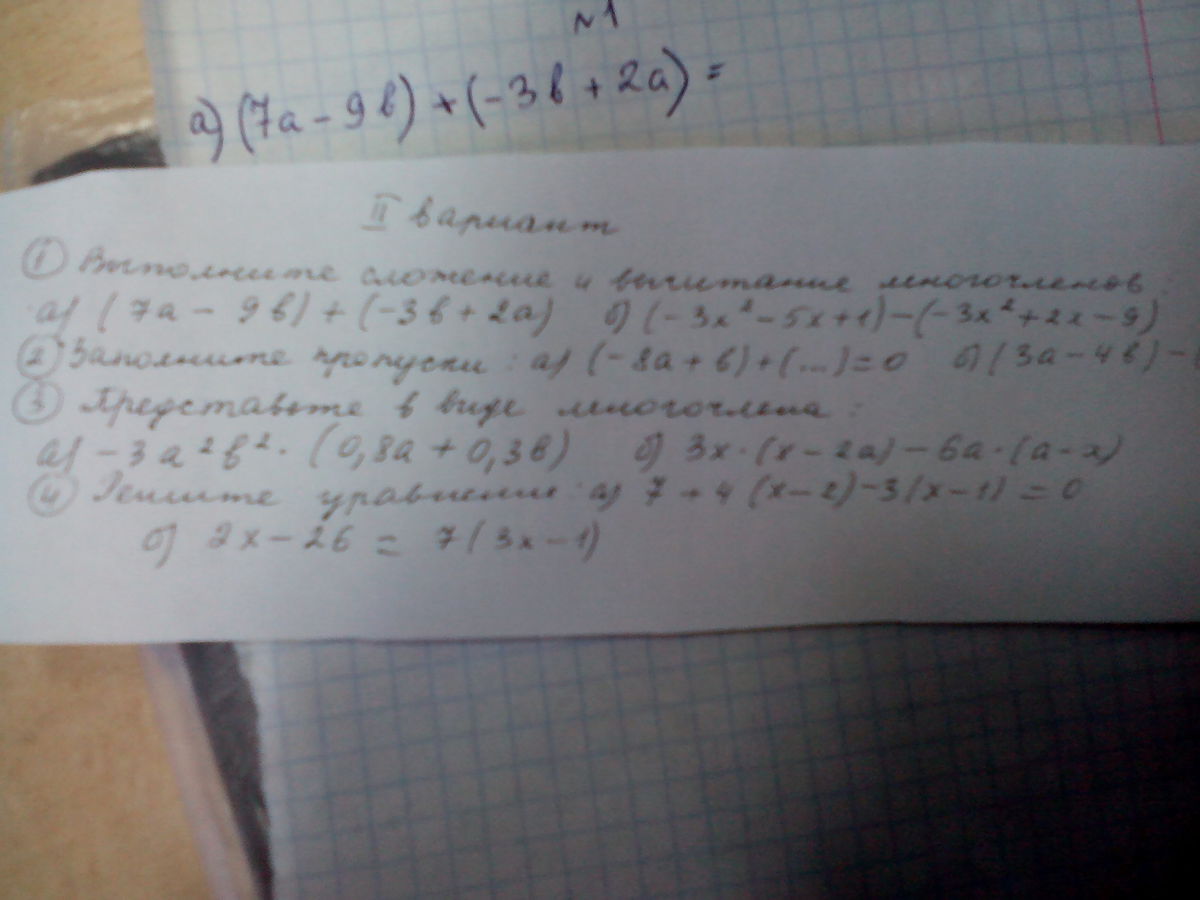 №1
а) (7а - 9в) + (-3в + 2а) =
II вариант
① Выполните сложение и вычитание многочленов:
а) (7а - 9в) + (-3в + 2а) б) (-3х² - 5х + 1) - (-3х² + 2х - 9)
② Заполните пропуски: а) (-8а + в) + (...) = 0 б) (3а - 4в) -
③ Представьте в виде многочлена:
а) -3а²в² · (0,8а + 0,3в) б) 3х · (х - 2а) - 6а · (а - х)
④ Решите уравнения: а) 7 + 4 (х - 2) - 3 (х - 1) = 0
б) 2х - 26 = 7 (3х - 1)